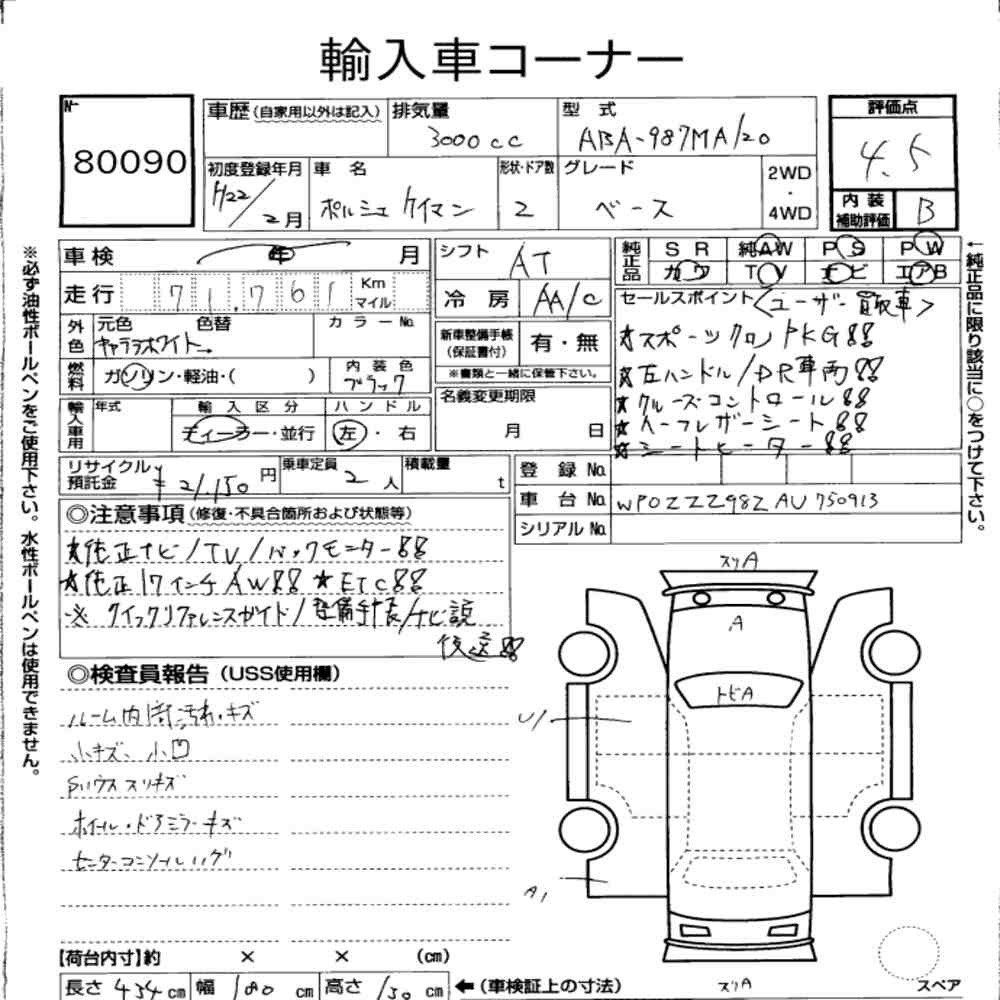 輸入車コーナー
No
80090
車歴 (自家用以外は記入)
排気量
3000cc
型 式
ABA-987MA120
評価点
4.5
初度登録年月
H22/2月
車 名
ポルシェ ケイマン
形状・ドア数
2
グレード
ベース
2WD
・
4WD
内 装
補助評価
B
車検 年 月
シフト
AT
純正品
SR 純AW PS PW
カワ TV ナビ エアB
走行
71,761
Km
マイル
冷 房
AA/C
セールスポイント <ユーザー買取車>
★スポーツクロノPKG!!
★左ハンドル/DR車両!!
★クルーズコントロール!!
★ハーフレザーシート!!
★シートヒーター!!
外色
元色 色替
キャララホワイト→
カラーNo.
新車整備手帳
(保証書付)
有・無
※書類と一緒に保管下さい。
燃料
ガソリン・軽油・( )
内装色
ブラック
名義変更期限
月 日
輸入車用
年式
輸入区分
ディーラー・並行
ハンドル
左・右
リサイクル
預託金
¥21,150円
乗車定員
2人
積載量
t
登 録 No.
車 台 No.
WP0ZZZ98ZAU750913
シリアルNo.
◎注意事項 (修復・不具合箇所および状態等)
★純正ナビ/TV/バックモニター!!
★純正17インチAW!! ★ETC!!
※クイックリファレンスガイド/整備手帳/ナビ説
後送!!
◎検査員報告 (USS使用欄)
ルーム内 汚れ・キズ
小キズ、小凹
ホイール・ドアミラーキズ
センターコンソールハゲ
スリA
A
トビA
U1
A1
スリA
スペア
【荷台内寸】約 × × (cm)
長さ 434cm 幅 180cm 高さ 130cm ←(車検証上の寸法)
※必ず油性ボールペンをご使用下さい。水性ボールペンは使用できません。
←純正品に限り該当に○をつけて下さい。